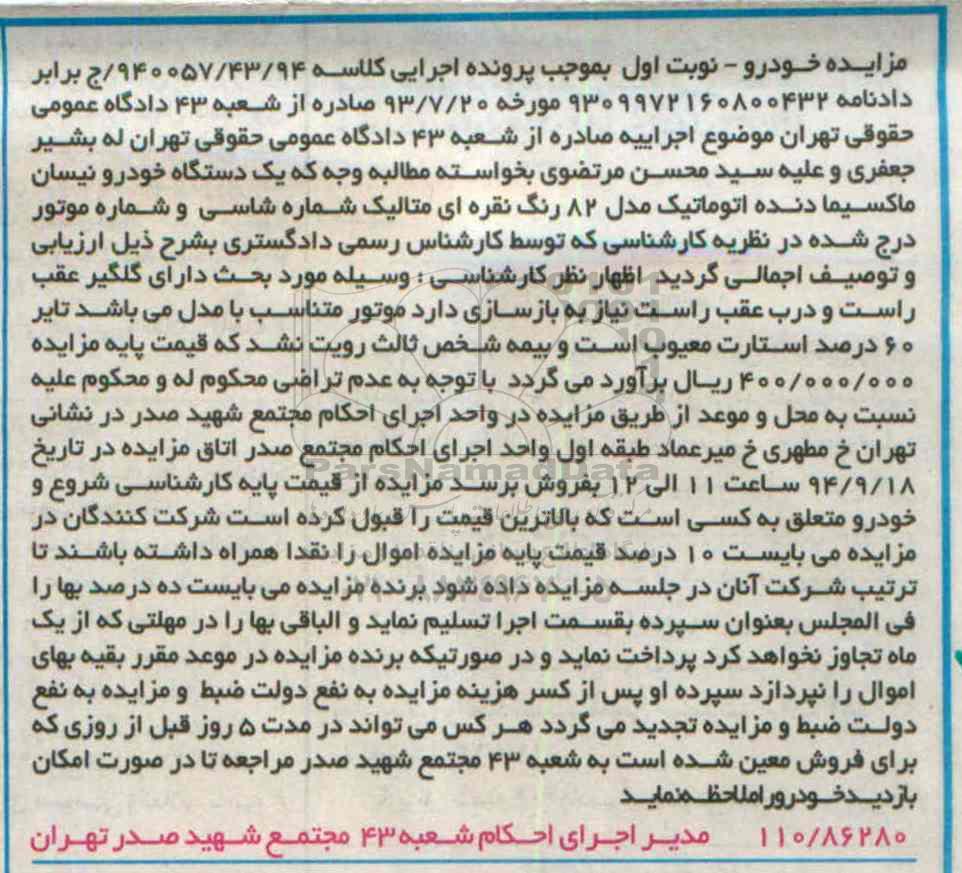 مزایده خودرو - نوبت اول بموجب پرونده اجرایی کلاسه ۹۴۰۰۵۷/۴۳/۹۴/ج برابر
دادنامه ۹۳۰۹۹۷۲۱۶۰۸۰۰۴۳۲ مورخه ۹۳/۷/۲۰ صادره از شعبه ۴۳ دادگاه عمومی
حقوقی تهران موضوع اجراییه صادره از شعبه ۴۳ دادگاه عمومی حقوقی تهران له بشیر
جعفری و علیه سید محسن مرتضوی بخواسته مطالبه وجه که یک دستگاه خودرو نیسان
ماکسیما دنده اتوماتیک مدل ۸۲ رنگ نقره ای متالیک شماره شاسی و شماره موتور
درج شده در نظریه کارشناسی که توسط کارشناس رسمی دادگستری بشرح ذیل ارزیابی
و توصیف اجمالی گردید اظهار نظر کارشناسی : وسیله مورد بحث دارای گلگیر عقب
راست و درب عقب راست نیاز به بازسازی دارد موتور متناسب با مدل می باشد تایر
۶۰ درصد استارت معیوب است و بیمه شخص ثالث رویت نشد که قیمت پایه مزایده
۴۰۰/۰۰۰/۰۰۰ ریال برآورد می گردد با توجه به عدم تراضی محکوم له و محکوم علیه
نسبت به محل و موعد از طریق مزایده در واحد اجرای احکام مجتمع شهید صدر در نشانی
تهران خ مطهری خ میرعماد طبقه اول واحد اجرای احکام مجتمع صدر اتاق مزایده در تاریخ
ParsNamadData
۹۴/۹/۱۸ ساعت ۱۱ الی ۱۲ بفروش برسد مزایده از قیمت پایه کارشناسی شروع و
خودرو متعلق به کسی است که بالاترین قیمت را قبول کرده است شرکت کنندگان در
مزایده می بایست ۱۰ درصد قیمت پایه مزایده اموال را نقدا همراه داشته باشند تا
ترتیب شرکت آنان در جلسه مزایده داده شود برنده مزایده می بایست ده درصد بها را
فی المجلس بعنوان سپرده بقسمت اجرا تسلیم نماید و الباقی بها را در مهلتی که از یک
ماه تجاوز نخواهد کرد پرداخت نماید و در صورتیکه برنده مزایده در موعد مقرر بقیه بهای
اموال را نپردازد سپرده او پس از کسر هزینه مزایده به نفع دولت ضبط و مزایده به نفع
دولت ضبط و مزایده تجدید می گردد هر کس می تواند در مدت ۵ روز قبل از روزی که
برای فروش معین شده است به شعبه ۴۳ مجتمع شهید صدر مراجعه تا در صورت امکان
بازدیدخودروراملاحظه‌نماید
۱۱۰/۸۶۲۸۰ مدیر اجرای احکام شعبه ۴۳ مجتمع شهید صدر تهران